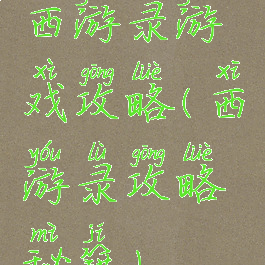 西游录游
xì gōng lüè xī
戏攻略(西
yóu lù gōng lüè
游录攻略
mì jí
秘笈)